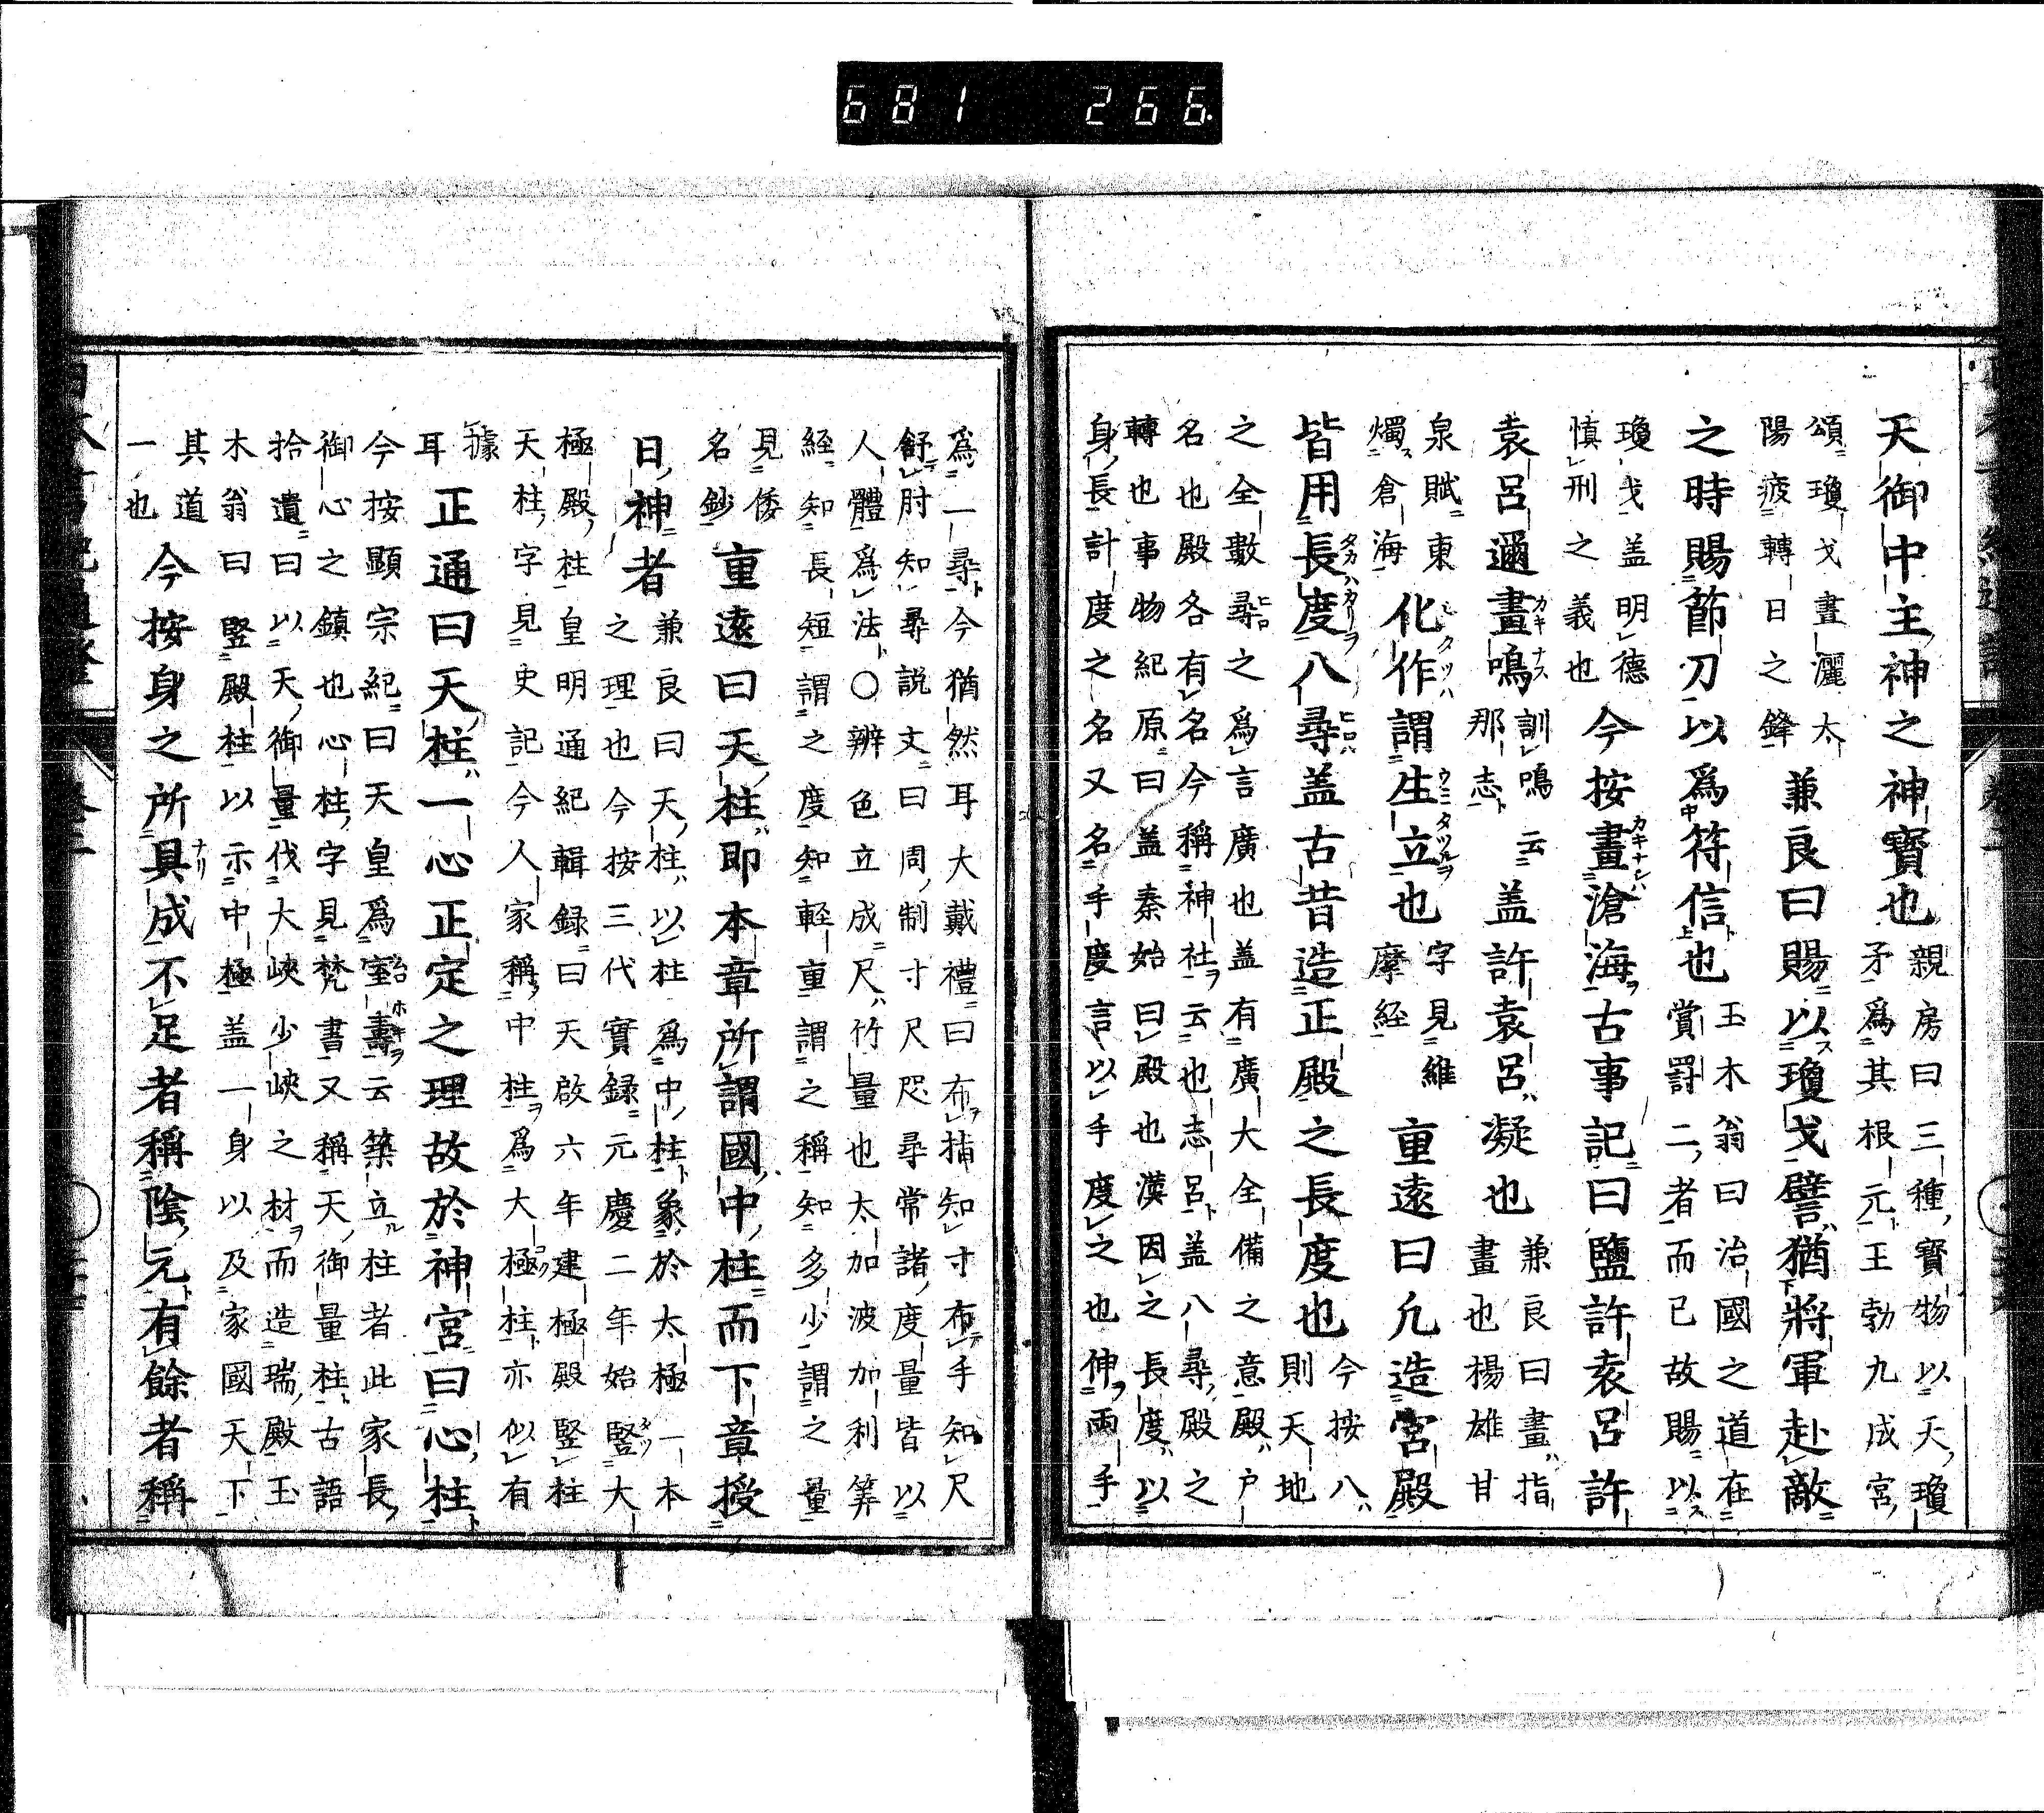 681 266
天御中主神之神寶也
親房曰三種寶物以天瓊
矛爲其根元王勃九成宮
頌瓊戈晝灑太
陽疲轉日之鋒
兼良曰賜以瓊戈譬猶將軍赴敵
之時賜節刀以爲符信也
玉木翁曰治國之道在
賞罰二者而已故賜以
瓊戈盖明德
慎刑之義也
今按畫滄海古事記曰鹽許袁呂許
袁呂邇畫鳴
訓鳴云
那志
盖許袁呂凝也
兼良曰畫指
畫也楊雄甘
泉賦東
燭倉海
化作謂生立也
字見維
摩経
重遠曰凢造宮殿
皆用長度八尋盖古昔造正殿之長度也
今按八
則天地
之全數尋之爲言廣也盖有廣大全備之意殿戸
名也殿各有名今稱神社云也志呂盖八尋殿之
轉也事物紀原曰盖秦始曰殿也漢因之長度以
身長計度之名又名手度言以手度之也伸兩手
爲一尋今猶然耳大戴禮曰布指知寸布手知尺
舒肘知尋説文曰周制寸尺咫尋常諸度量皆以
人體爲法〇辨色立成尺竹量也太加波加利筭
経知長短謂之度知軽重謂之稱知多少謂之量
見倭
名鈔
重遠曰天柱即本章所謂國中柱而下章授
日神者
兼良曰天柱以柱爲中柱象於太極一本
之理也今按三代實録元慶二年始竪大
極殿柱皇明通紀輯録曰天啟六年建極殿竪柱
天柱字見史記今人家稱中柱爲大極柱亦似有
據
耳
正通曰天柱一心正定之理故於神宮曰心柱
今按顯宗紀曰天皇爲室壽云築立柱者此家長
御心之鎮也心柱字見梵書又稱天御量柱古語
拾遺曰以天御量伐大峽少峽之材而造瑞殿玉
木翁曰竪殿柱以示中極盖一身以及家國天下
其道
一也
今按身之所具成不足者稱陰元有餘者稱